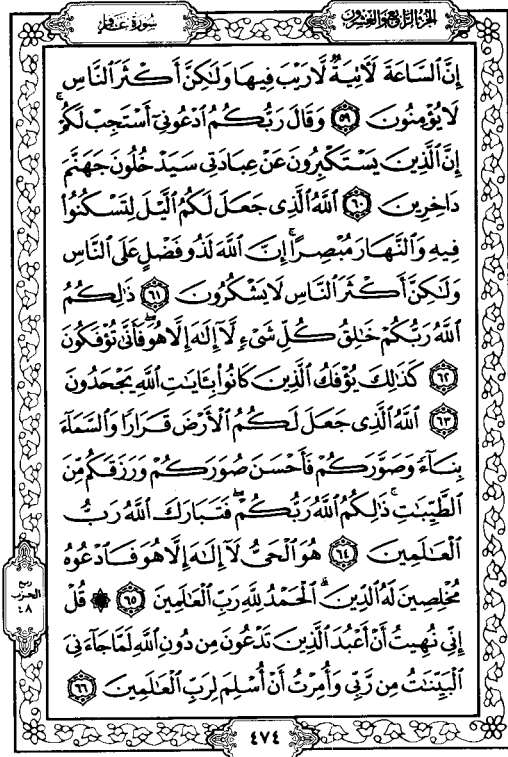 سُورَةُ غَافِرٍ
الجُزْءُ الرَّابِعُ وَالعِشْرُونَ
إِنَّ ٱلسَّاعَةَ لَأٓتِيَةٌ لَّا رَيْبَ فِيهَا وَلَٰكِنَّ أَكْثَرَ ٱلنَّاسِ
لَا يُؤْمِنُونَ ٥٩ وَقَالَ رَبُّكُمُ ٱدْعُونِيٓ أَسْتَجِبْ لَكُمْۚ
إِنَّ ٱلَّذِينَ يَسْتَكْبِرُونَ عَنْ عِبَادَتِي سَيَدْخُلُونَ جَهَنَّمَ
دَاخِرِينَ ٦٠ ٱللَّهُ ٱلَّذِي جَعَلَ لَكُمُ ٱلَّيْلَ لِتَسْكُنُوا۟
فِيهِ وَٱلنَّهَارَ مُبْصِرًاۚ إِنَّ ٱللَّهَ لَذُو فَضْلٍ عَلَى ٱلنَّاسِ
وَلَٰكِنَّ أَكْثَرَ ٱلنَّاسِ لَا يَشْكُرُونَ ٦١ ذَٰلِكُمُ
ٱللَّهُ رَبُّكُمْ خَٰلِقُ كُلِّ شَيْءٍ لَّآ إِلَٰهَ إِلَّا هُوَۖ فَأَنَّىٰ تُؤْفَكُونَ
٦٢ كَذَٰلِكَ يُؤْفَكُ ٱلَّذِينَ كَانُوا۟ بِـَٔايَٰتِ ٱللَّهِ يَجْحَدُونَ
٦٣ ٱللَّهُ ٱلَّذِي جَعَلَ لَكُمُ ٱلْأَرْضَ قَرَارًا وَٱلسَّمَآءَ
بِنَآءً وَصَوَّرَكُمْ فَأَحْسَنَ صُوَرَكُمْ وَرَزَقَكُم مِّنَ
ٱلطَّيِّبَٰتِۚ ذَٰلِكُمُ ٱللَّهُ رَبُّكُمْۖ فَتَبَارَكَ ٱللَّهُ رَبُّ
ٱلْعَٰلَمِينَ ٦٤ هُوَ ٱلْحَيُّ لَآ إِلَٰهَ إِلَّا هُوَ فَٱدْعُوهُ
مُخْلِصِينَ لَهُ ٱلدِّينَۗ ٱلْحَمْدُ لِلَّهِ رَبِّ ٱلْعَٰلَمِينَ ٦٥ ۞ قُلْ
إِنِّي نُهِيتُ أَنْ أَعْبُدَ ٱلَّذِينَ تَدْعُونَ مِن دُونِ ٱللَّهِ لَمَّا جَآءَنِيَ
ٱلْبَيِّنَٰتُ مِن رَّبِّي وَأُمِرْتُ أَنْ أُسْلِمَ لِرَبِّ ٱلْعَٰلَمِينَ ٦٦
ربع
الحزب
٤٨
٤٧٤